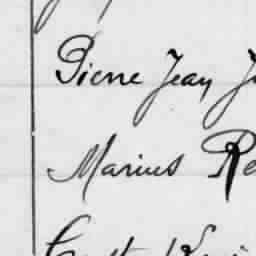 Pierre Jean J
Marius Re